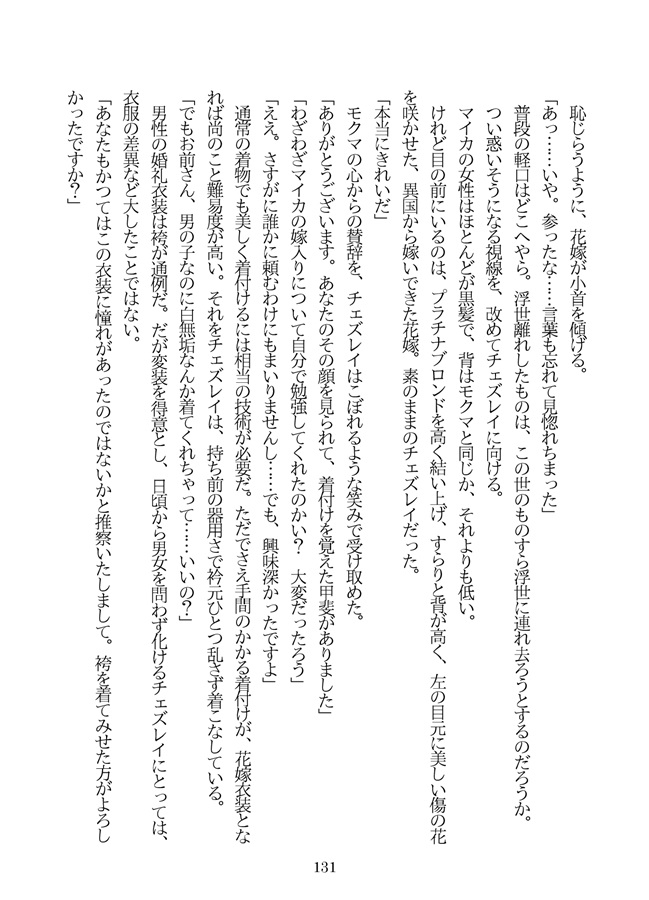 恥じらうように、花嫁が小首を傾げる。
「あっ……いや。参ったな……言葉も忘れて見惚れちまった」
普段の軽口はどこへやら。浮世離れしたものは、この世のものすら浮世に連れ去ろうとするのだろうか。
つい惑いそうになる視線を、改めてチェズレイに向ける。
マイカの女性はほとんどが黒髪で、背はモクマと同じか、それよりも低い。
けれど目の前にいるのは、プラチナブロンドを高く結い上げ、すらりと背が高く、左の目元に美しい傷の花
を咲かせた、異国から嫁いできた花嫁。素のままのチェズレイだった。
「本当にきれいだ」
モクマの心からの賛辞を、チェズレイはこぼれるような笑みで受け取めた。
「ありがとうございます。あなたのその顔を見られて、着付けを覚えた甲斐がありました」
「わざわざマイカの嫁入りについて自分で勉強してくれたのかい？　大変だったろう」
「ええ。さすがに誰かに頼むわけにもまいりませんし……でも、興味深かったですよ」
通常の着物でも美しく着付けるには相当の技術が必要だ。ただでさえ手間のかかる着付けが、花嫁衣装とな
れば尚のこと難易度が高い。それをチェズレイは、持ち前の器用さで衿元ひとつ乱さず着こなしている。
「でもお前さん、男の子なのに白無垢なんか着てくれちゃって……いいの？」
男性の婚礼衣装は袴が通例だ。だが変装を得意とし、日頃から男女を問わず化けるチェズレイにとっては、
衣服の差異など大したことではない。
「あなたもかつてはこの衣装に憧れがあったのではないかと推察いたしまして。袴を着てみせた方がよろし
かったですか？」
131